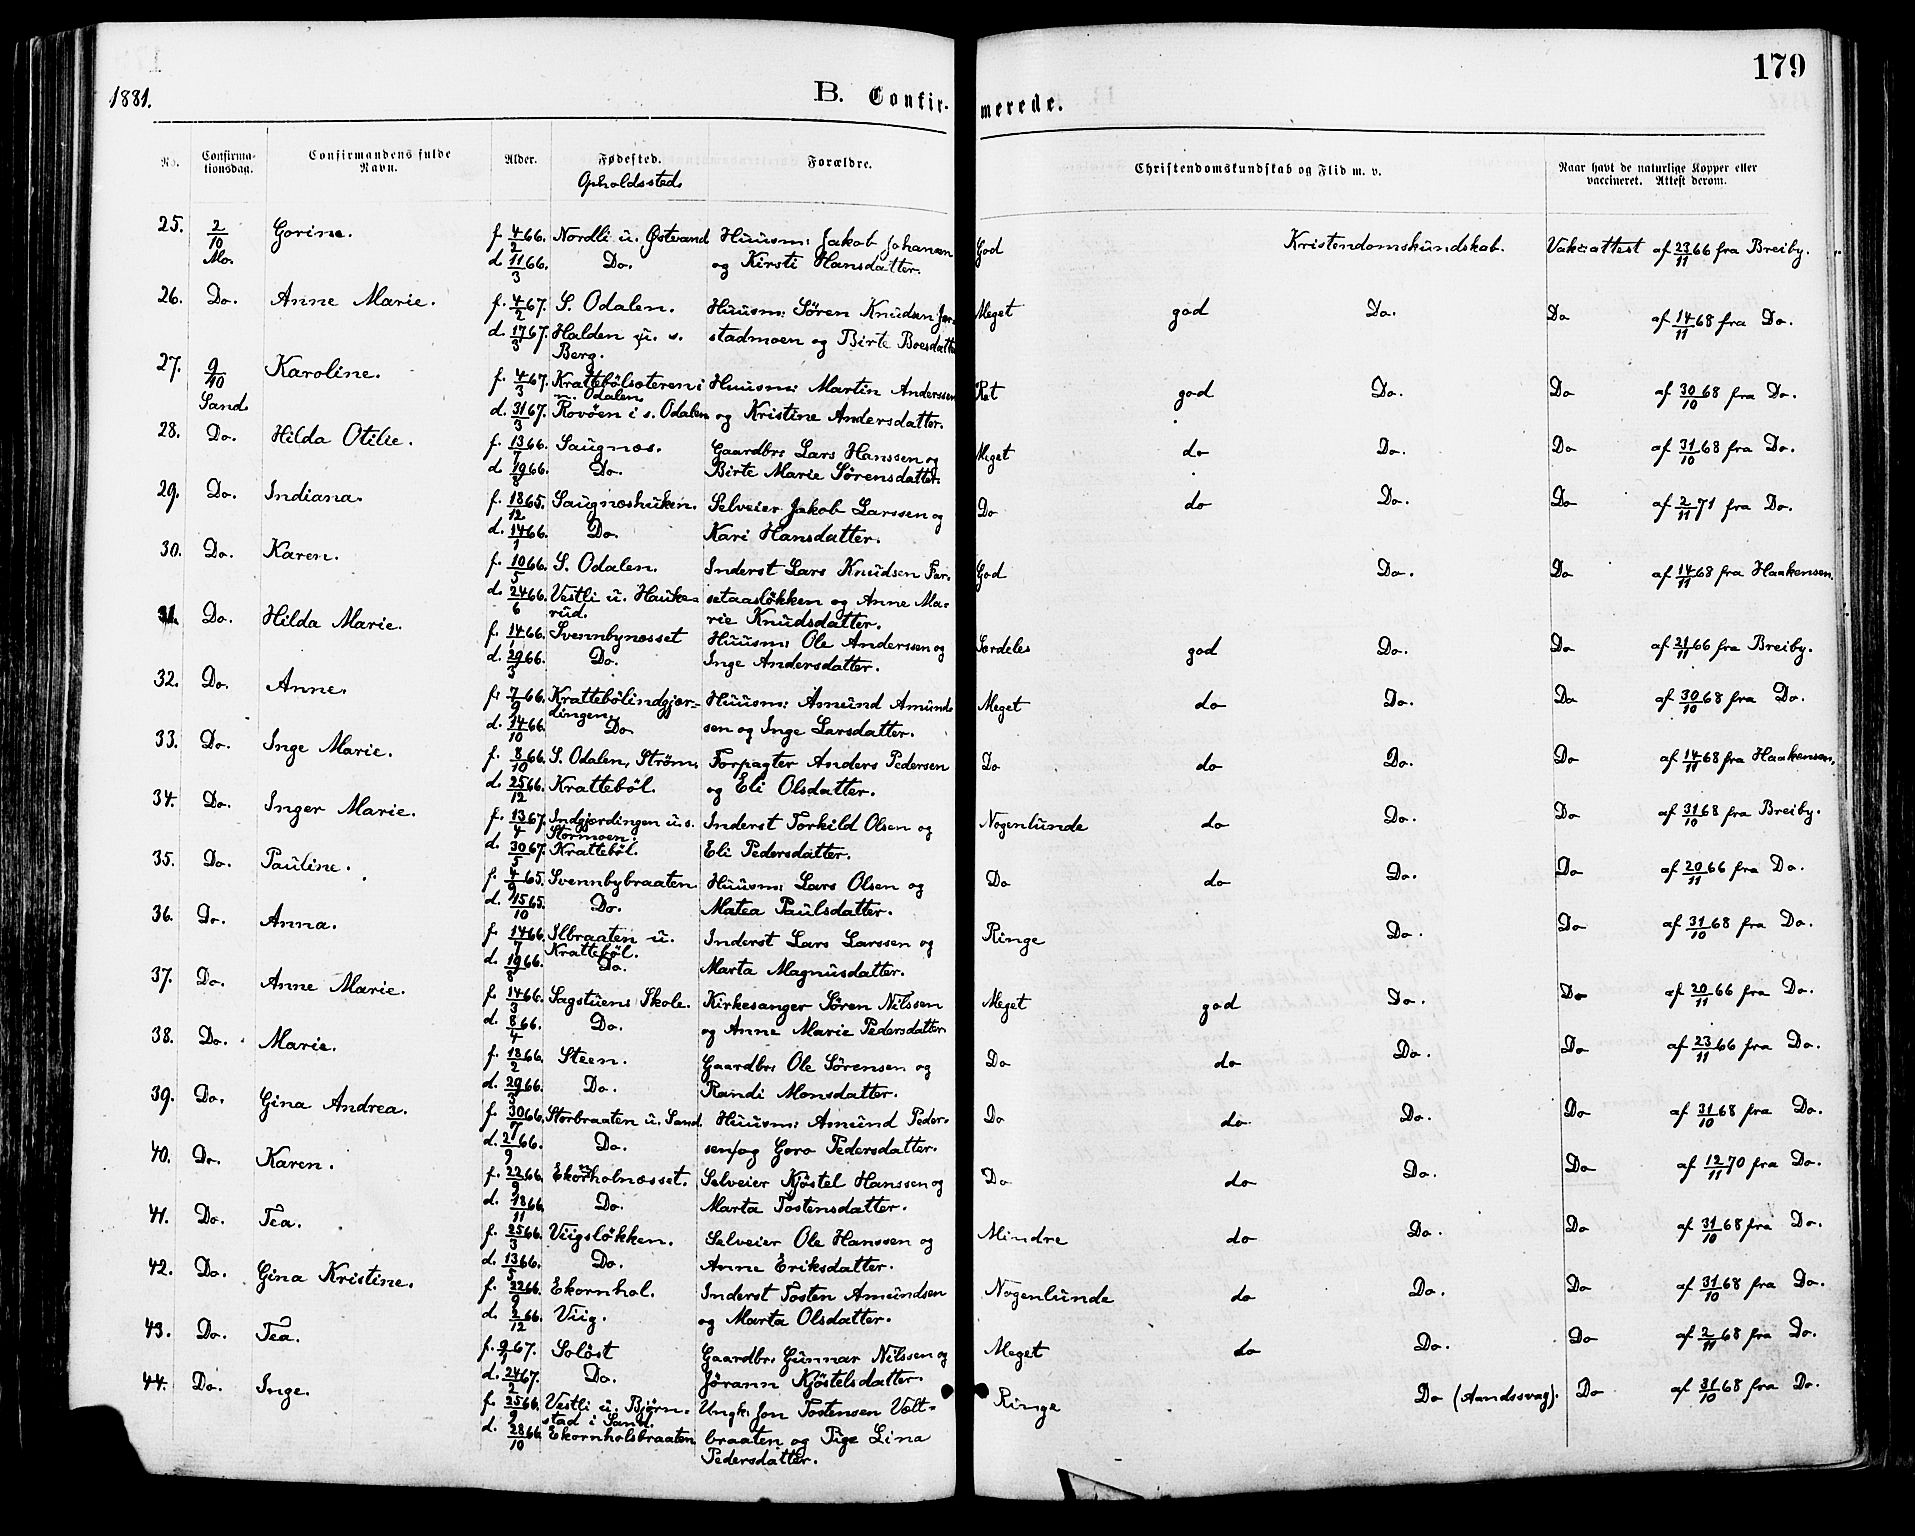 179
1881.
B. Confirmerede.
No. Confirmationsdag. Confirmandens fulde Navn. Alder. Fødested. Opholdssted. Forældre. Christendomskundskab og Flid m. v. Naar havt de naturlige Kopper eller vaccineret. Attest derom.
25. 2/10 Mo. Gorine. f. 4/2 66. Nordli u. Østvand Huusm: Jakob Johansen God Kristendomskundskab. Vak:attest af 23/11 66 fra Breiby.
d. 11/3 66. Do. og Kirsti Hansdatter.
26. Do. Anne Marie. f. 4/2 67. S. Odalen. Huusm: Søren Knudsen Meget god Do. Do af 14/11 68 fra Do.
d. 17/3 67. Halden u. s. Berg. stadmoen og Birte Boesdatter
27. 9/10 Sand. Karoline. f. 4/3 67. Krattebølsæteren i n. Odalen. Huusm: Martin Anderssen Ret god Do. Do af 30/10 68 fra Do.
d. 31/3 67. Rovøen i s. Odalen og Kristine Andersdatter.
28. Do. Hilda Otilie. f. 13/7 66. Saugnæs. Gaardbr: Lars Hanssen og Meget do Do. Do af 31/10 68 fra Do.
d. 19/8 66. Do. Birte Marie Sørensdatter.
29. Do. Indiana. f. 18/12 65. Saugnæshuken. Selveier Jakob Larssen og Do do Do. Do af 2/11 71 fra Do.
d. 14/1 66. Do. Kari Hansdatter.
30. Do. Karen. f. 10/5 66. S. Odalen. Inderst Lars Knudsen Far- God Do. Do af 14/11 68 fra Haakensen.
d. 24/6 66. Vestli u. Haukerud. setaasløkken og Anne Marie Knudsdatter.
31. Do. Hilda Marie. f. 14/1 66. Svennbynæsset Huusm: Ole Anderssen og Særdeles god Do. Do af 21/11 66 fra Breiby.
d. 29/3 66. Do. Inge Andersdatter.
32. Do. Anne. f. 7/9 66. Krattebølindgjærdingen. Huusm: Amund Amund- Meget do Do. Do af 30/10 68 fra Do.
d. 14/10 66. Do sen og Inge Larsdatter.
33. Do. Inge Marie. f. 8/10 66. S. Odalen, Strøm. Forpagter Anders Pedersen Do do Do. Do af 14/11 68 fra Haakensen.
d. 25/12 66. Krattebøl. og Eli Olsdatter.
34. Do. Inger Marie. f. 13/4 67. Indgjærdingen u. s. Stormoen. Inderst Torkild Olsen og Nogenlunde do Do. Do af 31/10 68 fra Breiby.
d. 30/5 67. Krattebøl. Eli Pedersdatter.
35. Do. Pauline. f. 4/9 65. Svennbybraaten Huusm: Lars Olsen og Do do Do. Do af 20/11 66 fra Do.
d. 15/10 65. Do. Matea Paulsdatter.
36. Do. Anna. f. 14/7 66. Ilbraaten u. Krattebøl. Inderst Lars Larssen og Ringe Do. Do af 31/10 68 fra Do.
d. 19/8 66. Do. Marta Magnusdatter.
37. Do. Anne Marie. f. 14/3 66. Sagstuens Skole. Kirkesanger Søren Nilssen Meget god Do. Do af 20/11 66 fra Do.
d. 8/4 66. Do. og Anne Marie Pedersdatter.
38. Do. Marie. f. 18/2 66. Steen. Gaardbr: Ole Sørensen og Do do Do. Do af 23/11 66 fra Do.
d. 29/3 66. Do. Randi Monsdatter.
39. Do. Gina Andrea. f. 30/7 66. Storbraaten u. Sand. Huusm: Amund Peder- Do do Do. Do af 31/10 68 fra Do.
d. 2/9 66. Do. sen og Goro Pedersdatter.
40. Do. Karen. f. 22/9 66. Ekornholnæsset. Selveier Kjøstel Hanssen og Do do Do. Do af 12/11 70 fra Do.
d. 18/11 66. Do. Marta Tostensdatter.
41. Do. Tea. f. 25/3 66. Viigsløkken. Selveier Ole Hanssen og Mindre do Do. Do af 31/10 68 fra Do.
d. 13/5 66. Do. Anne Eriksdatter.
42. Do. Gina Kristine. f. 22/9 66. Ekornhol. Inderst Tosten Amundsen Nogenlunde do Do. Do af 31/10 68 fra Do.
d. 2/12 66. Viig. og Marta Olsdatter.
43. Do. Tea. f. 9/1 67. Soløst Gaardbr: Gunnar Nilssen og Meget do Do. Do af 2/11 68 fra Do.
d. 24/2 67. Do. Jørann Kjøstelsdatter.
44. Do. Inge. f. 25/9 66. Vestli u. Bjørnstad i Sand. Ungk: Jon Tostensen Vælt- Ringe Do (Aandssvag). Do af 31/10 68 fra Do.
d. 28/10 66. Ekornholsbraaten braaten og Pige Lina
Pedersdatter.